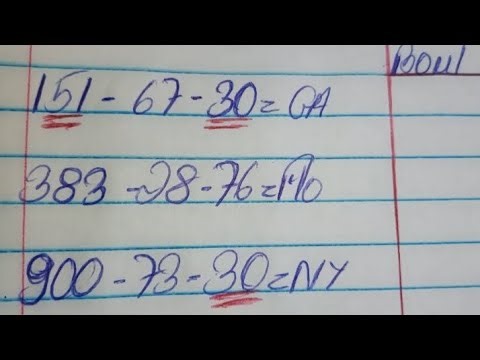 151-67-30=GA
383-28-76=Mo
900-73-30=NY